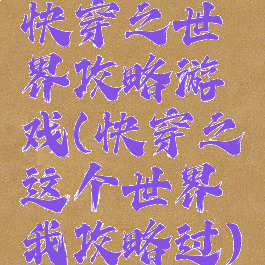 快穿之世
界攻略游
戏(快穿之
这个世界
我攻略过)